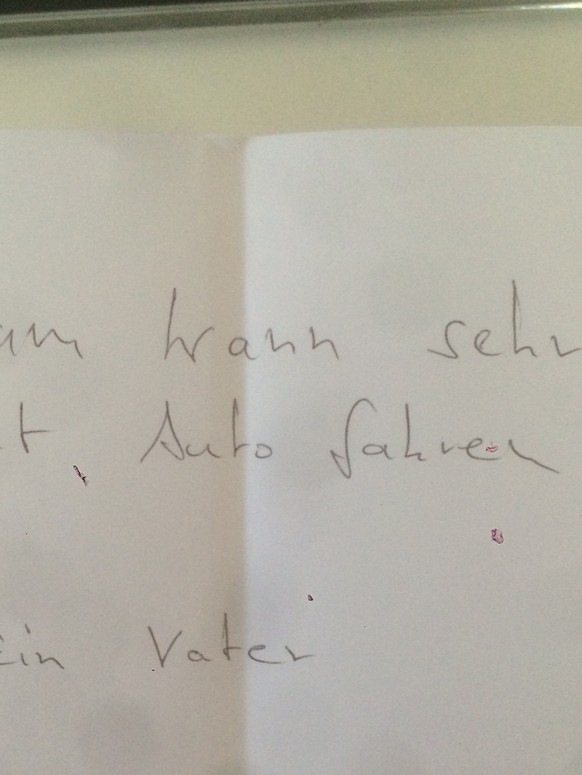 um kann sehr
t Auto fahren
ein Vater